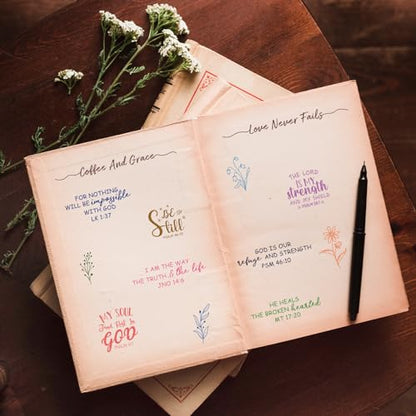 Coffee And Grace
FOR NOTHING
WILL BE impossible
WITH GOD
LK 1:37
Be
Still
PSALM 46:10
I AM THE WAY
THE TRUTH & the life
JNO 14:6
MY SOUL
Find Rest In
GOD
Love Never Fails
THE LORD
IS MY
strength
AND MY SHIELD
GOD IS OUR
refuge AND STRENGTH
PSM 46:10
HE HEALS
THE BROKEN hearted
MT 17:20